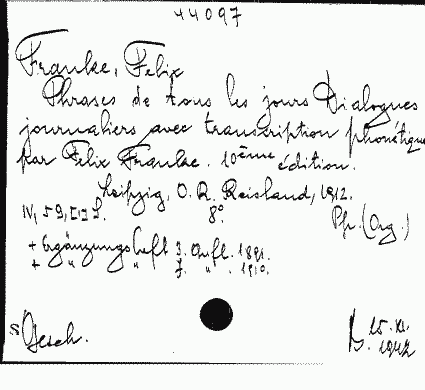 44097
Franke, Felix
Phrases de tous les jours Dialogues
journaliers avec transcription phonétique
par Felix Franke. 10ème édition.
Leipzig, O. R. Reisland, 1912.
IV, 59, [1] S. 8°.
+ Ergänzungsheft 3. Aufl. 1891.
+ " " 7. " 1910.
Gesch.
15. XI.
1942